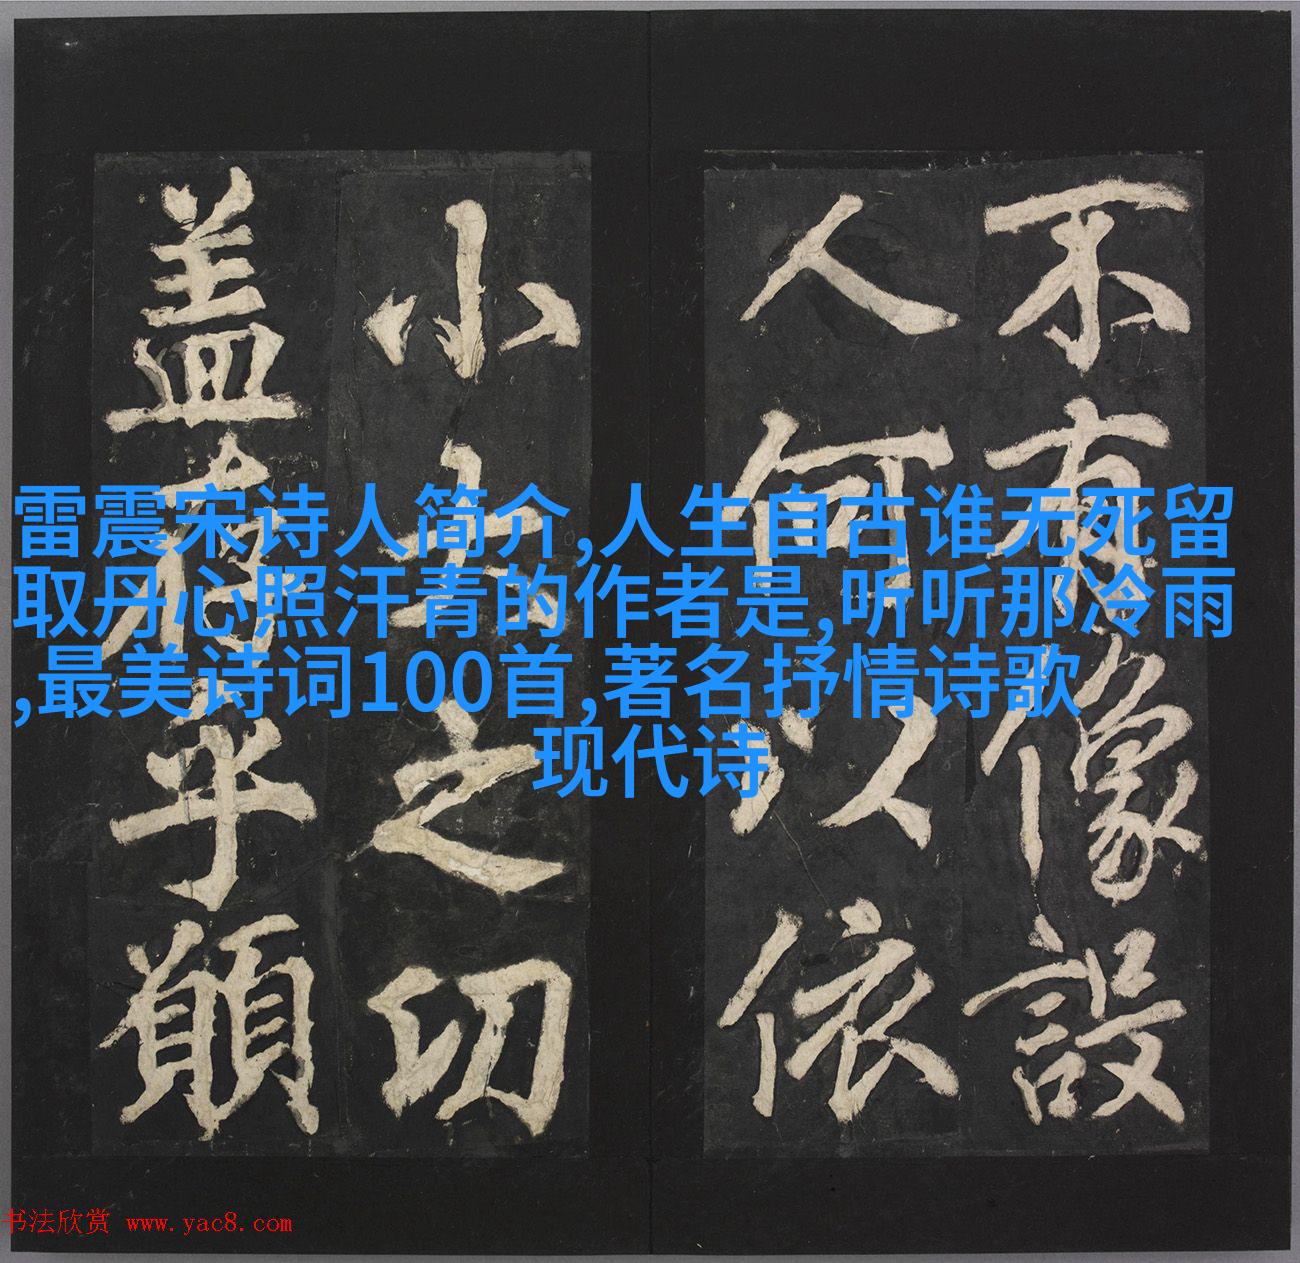 不有像設
人何以依
小大之功
盖存乎願
雷震宋诗人简介,人生自古谁无死留
取丹心照汗青的作者是,听听那冷雨
,最美诗词100首,著名抒情诗歌
现代诗
书法欣赏 www.yac8.com